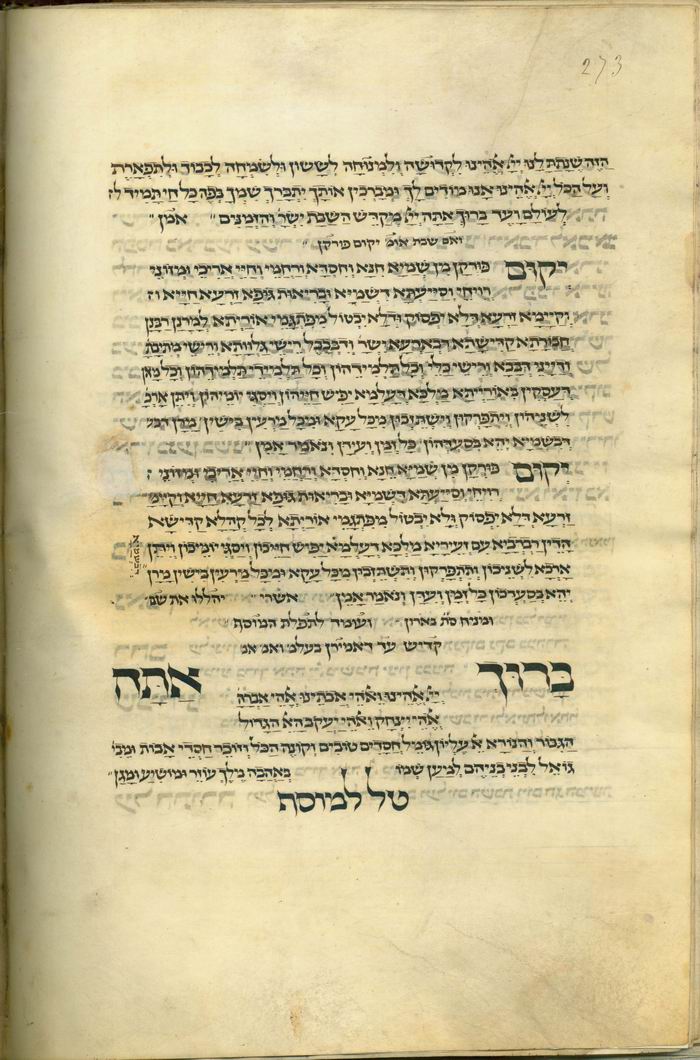 273
הזה שנתת לנו ייי אלהינו לקדושה ולמנוחה לששון ולשמחה לכבוד ולתפארת
ועל הכל ייי אלהינו אנו מודים לך ומברכין אותך יתברך שמך בפה כל חי תמיד לז
לעולם ועד ברוך אתה ייי מקדש השבת ישר׳ והזמנים אמן
ואם שבת אומ׳ יקום פורקן
יקום פורקן מן שמיא חנא וחסדא ורחמי וחיי אריכי ומזוני
רויחי וסייעתא דשמייא ובריאות גופא זרעא חייא וז
וקיימא זרעא דלא יפסוק ודלא יבטול מפתגמי אוריתא למרנן רבנן
חבורתא קדישתא דבארעא ישר׳ ודבבבל רישי גלוותא ורישי מתיבת
ודייני דבבא ורישי כלי וכל תלמידיהון וכל תלמידי תלמידיהון וכל מאן
דעסקין באוריתא מלכא דעלמא יפיש חייהון ויסגי יומיהון ויתן ארכ׳
לשניהון ויתפרקון וישתזבון מכל עקא ומכל מרעין בישין מרן דב׳
דבשמיא יהא בסעדהון כל זמן ועידן ונאמר אמן
יקום פורקן מן שמיא חנא וחסדא ורחמי וחיי אריכי ומזוני ר
רויחי וסייעתא דשמיא ובריאות גופא זרעא חייא וקיימ׳
זרעא דלא יפסוק ולא יבטול מפתגמי אוריתא לכל קהלא קדישא
הדין רברביא עם זעיריא מלכא דעלמא יפיש חייכון ויסגי יומיכון ויתן
ארכא לשניכון ותתפרקון ותשתזבון מכל עקא ומכל מרעין בישין מרן
דבשמיא
יהא בסעדכון כל זמן ועידן ונאמר אמן אשרי יהללו את שם׳
ומניח ס״ת בארון ועומיד לתפלת המוסף
קדיש עד דאמירן בעלמ׳ ואמ׳ אמ׳
ברוך אתה
ייי אלהינו ואלהי אבתינו אלהי אברה׳
אלהי יצחק ואלהי יעקב האל הגדול
הגבור והנורא אל עליון גומל חסדים טובים וקונה הכל וזוכר חסדי אבות ומבי׳
גואל לבני בניהם למען שמו באהבה מלך עוזר ומושיע ומגן
טל למוסף